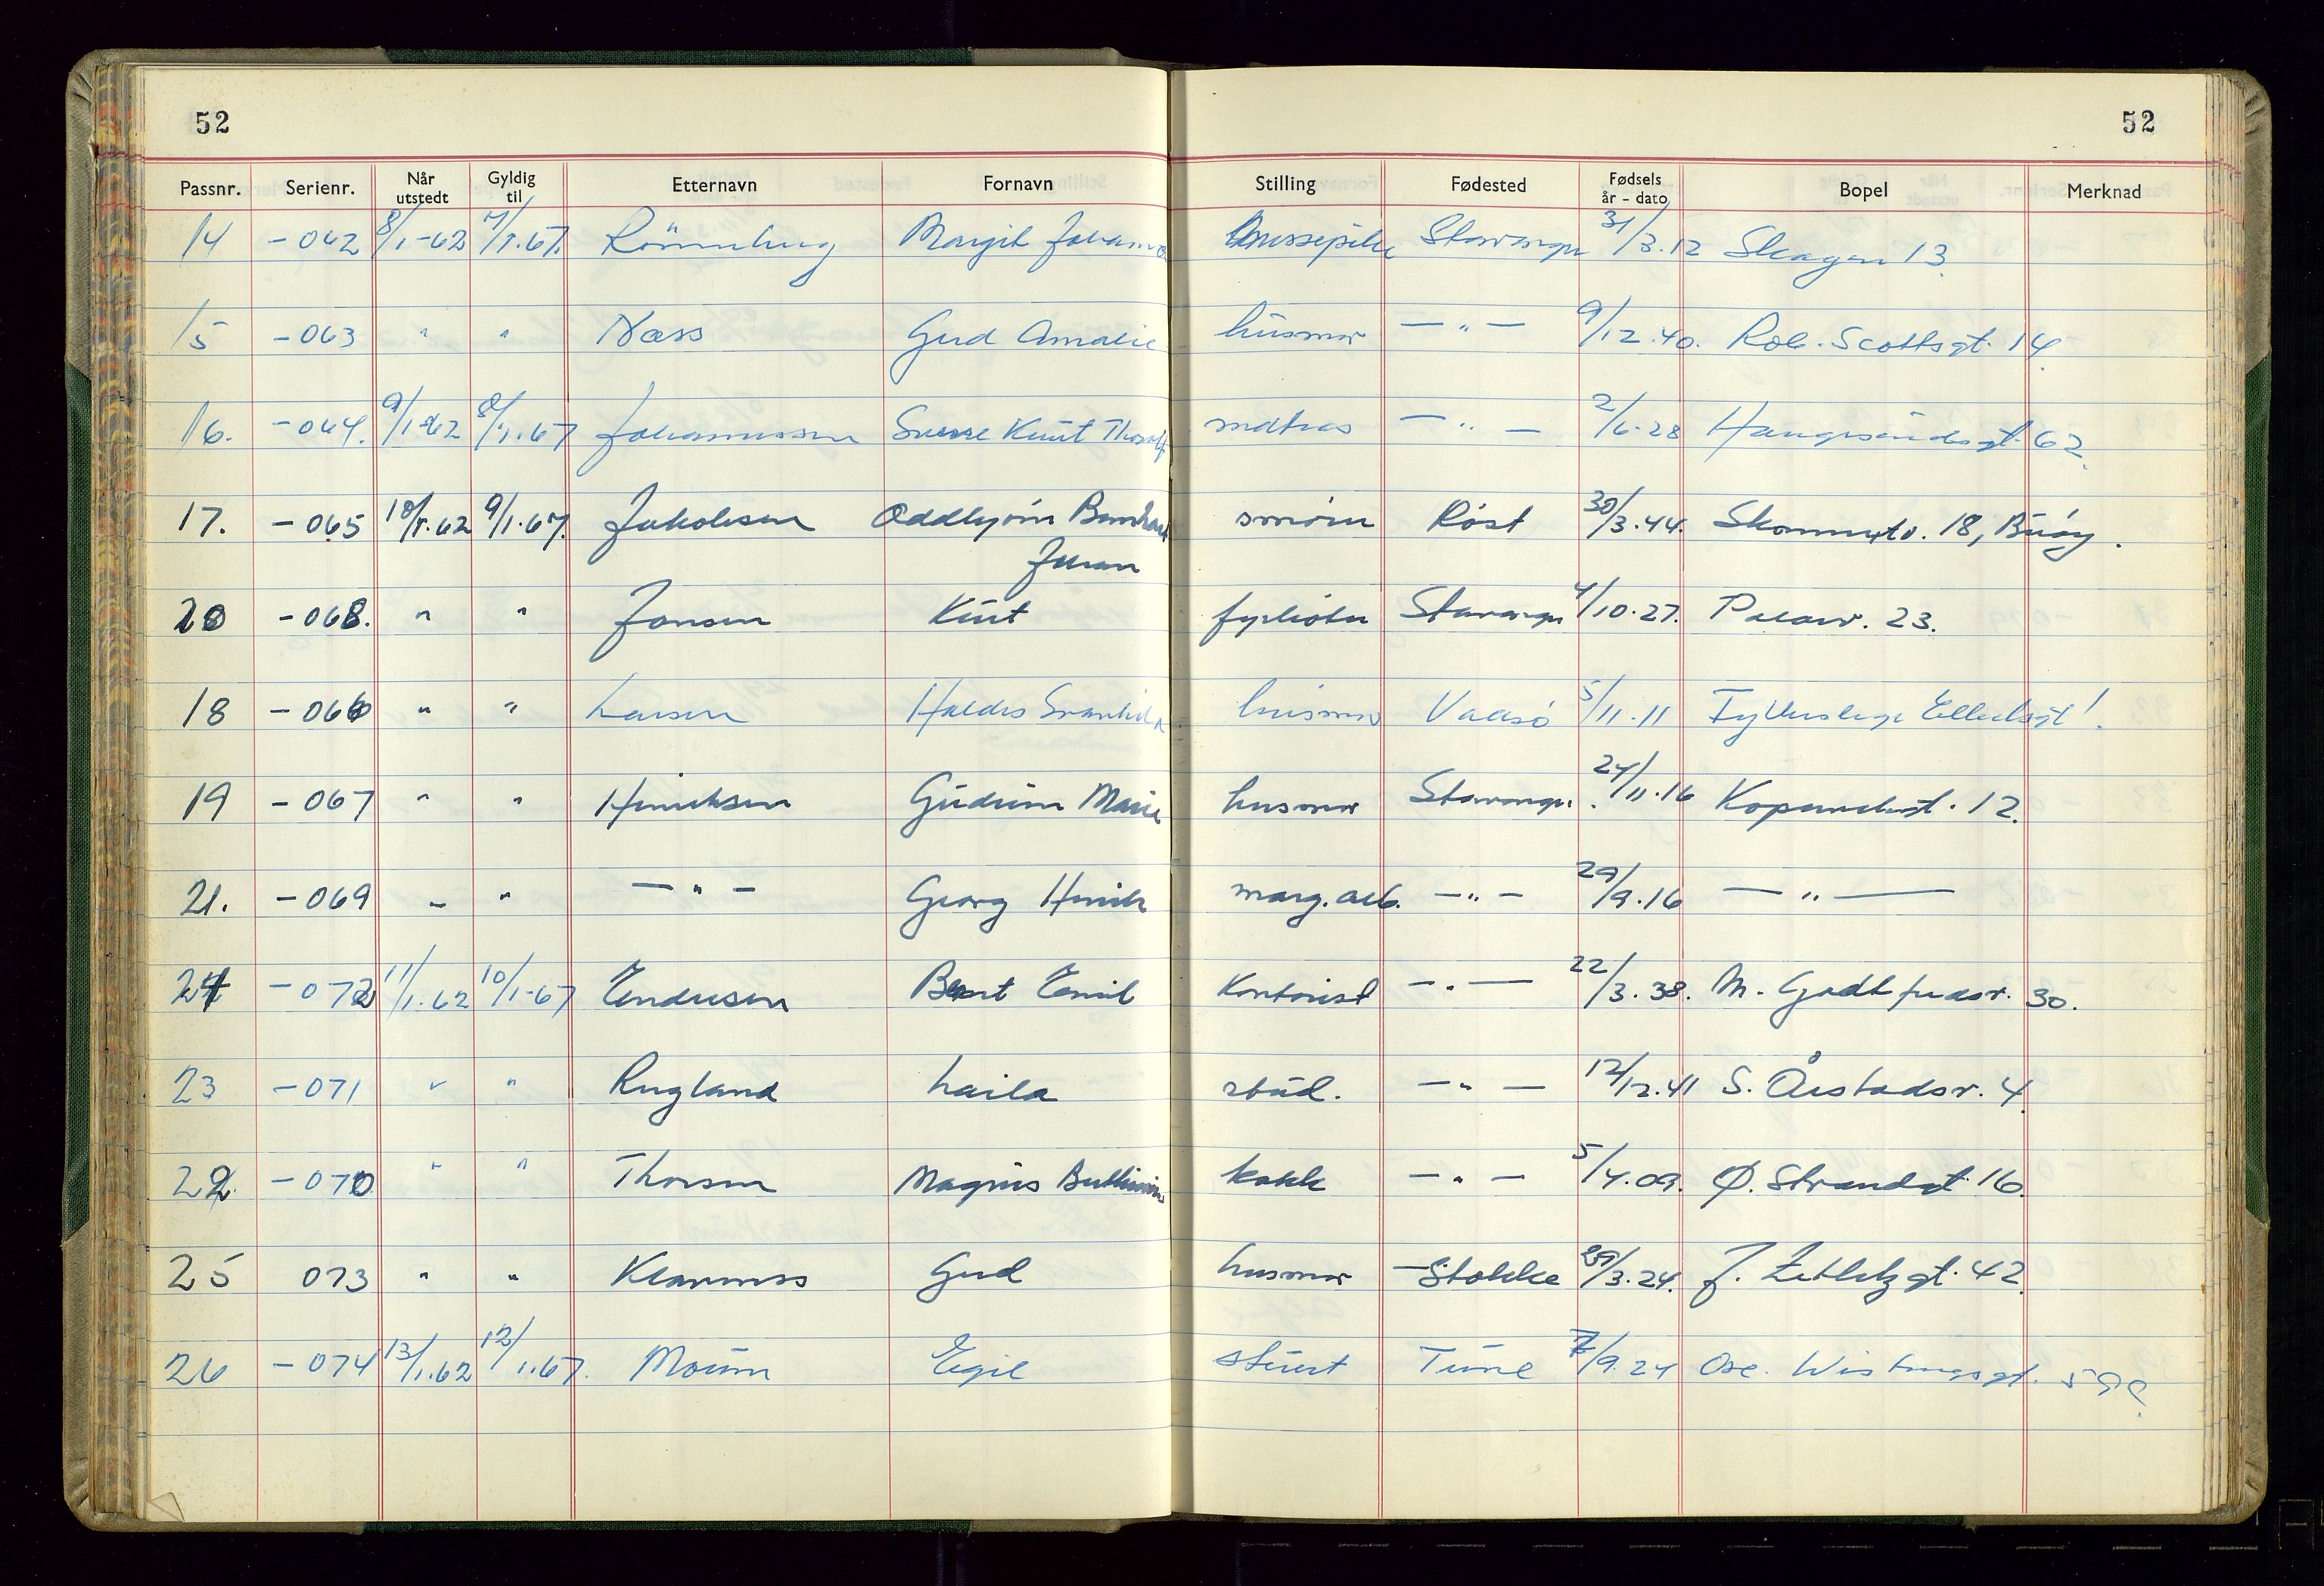 52
52
Passnr. Serienr. Når utstedt Gyldig til Etternavn Fornavn Stilling Fødested Fødsels år - dato Bopel Merknad
14 -062 8/1-62 7/1.67. Rönneberg Margit Johanna Stavanger 31/3.12 Skagen 13.
15 -063 " " Næss Gerd Amalie husmor - " - 9/12.40. Rob. Scottsgt. 14.
16. -064. 9/1-62 8/1.67 Johannessen Sverre Knut Thoralf matros - " - 2/6.28 Haugesundsgt. 62.
17. -065 10/1.62 9/1.67. Jakobsen Oddbjörn Bernhard smörer Röst 30/3.44. 18, Buöy.
Johan
20 -068. " " Jensen Knut fyrböter Stavanger 4/10.27. 23.
18 -066 " " Larsen Haldis Svanhild husmor Vaksö 5/11.11
19 -067 " " Hinriksen Gudrun Marie husmor Stavanger 24/11.16 12.
21. -069 " " - " - Georg Hinrik marg.arb. - " - 29/9.16 - " -
24 -072 11/1.62 10/1-67 Endresen Bent Emil Kontorist - " - 22/3.38. M. Godtfredsv. 30.
23 -071 " " Rugland Laila stud. - " - 12/12.41 S. Årstadsv. 4.
22. -070 " " Thorsen Magnus kokk - " - 5/4.09. Ø. Strandgt. 16.
25 073 " " Klaveness Gerd husmor Stokke 29/3.24. J. Zetlitzgt. 42.
26 -074 13/1.62 12/1.67. Moum Egil stuert Tune 7/9.24 Osc. Wistingsgt.